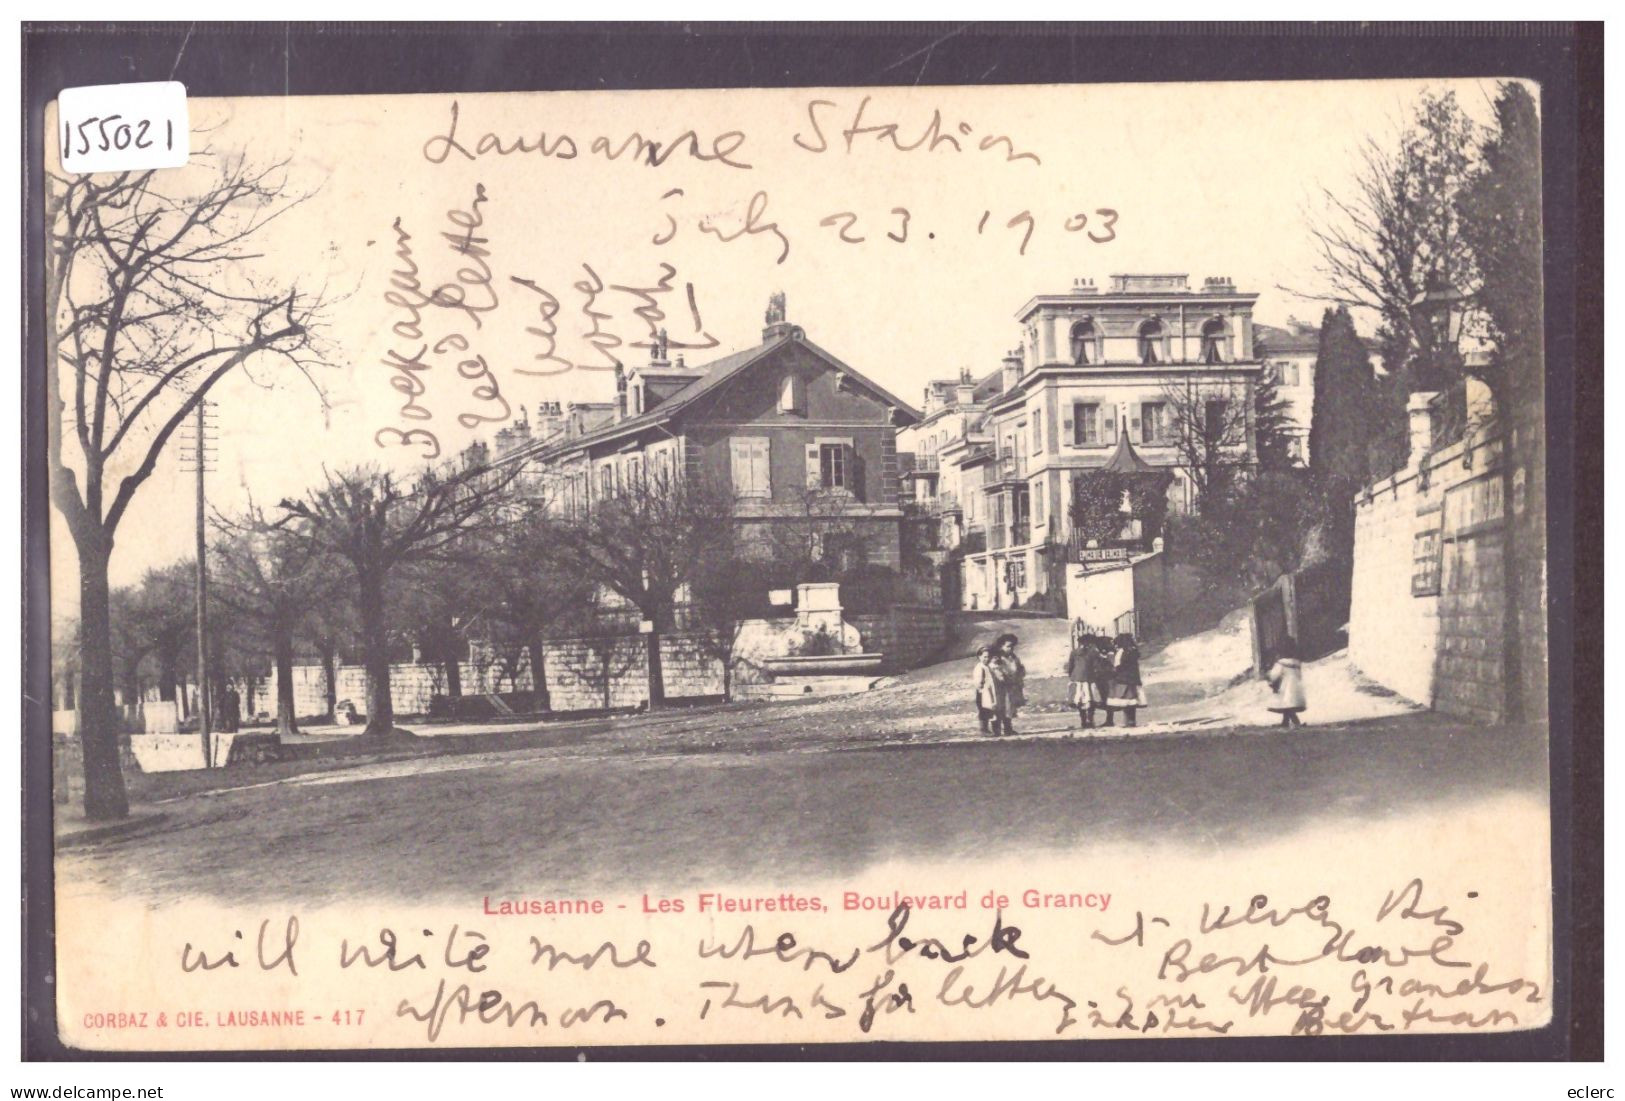 155021
Lausanne Station
July 23. 1903
EPICERIE MERCERIE
Lausanne - Les Fleurettes, Boulevard de Grancy
will write more when back at Vevey this
afternoon. Thanks for letter. Best love
your Grandson
Bertran
CORBAZ & CIE. LAUSANNE - 417
www.delcampe.net
eclerc